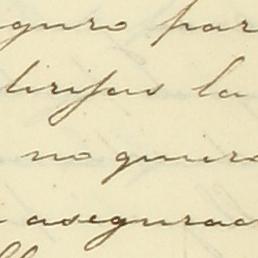 guro par
dirijas la
no quiero
asegurac